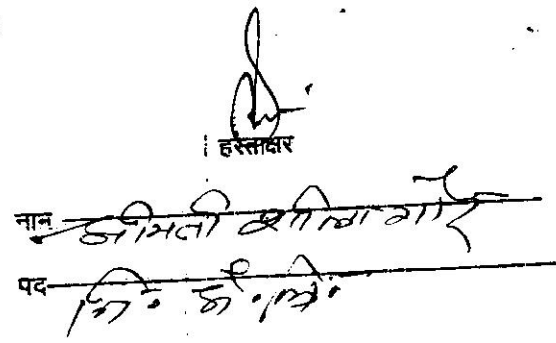 हस्ताक्षर
नाम श्रीमती शीला गौर
पद